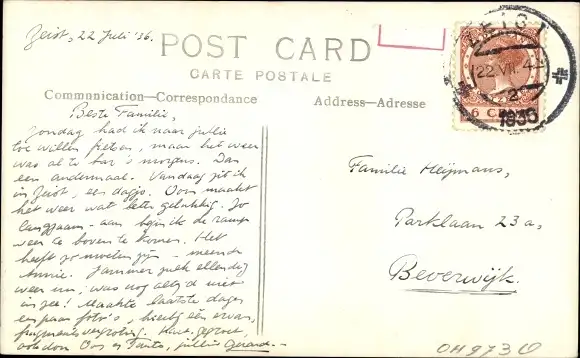 Zeist, 22 Juli '36.
POST CARD
CARTE POSTALE
Communication—Correspondance
Address—Adresse
ZEIST
22 VII 4
2
1936
6 C
Beste Familie,
Zondag had ik naar jullie
toe willen fietsen, maar het weer
was al te bar 's morgens. Dan
een andermaal. Vandaag zit ik
in Zeist, een dagje. Oom maakt
het weer wat beter gelukkig. Zo
langzaam-aan begin ik de ramp
weer te boven te komen. Het
heeft zo moeten zijn - meende
Annie. Jammer zulk ellendig
weer nu; was nog altijd niet
in zee! Maakte laatste dagen
een paar foto's, hierbij één ervan,
fragmentvergroting. Hart. gegroet,
ook don Oos en Tante, jullie Gerard.-
Familie Heijmans,
Parklaan 23a,
Beverwijk.
OH973